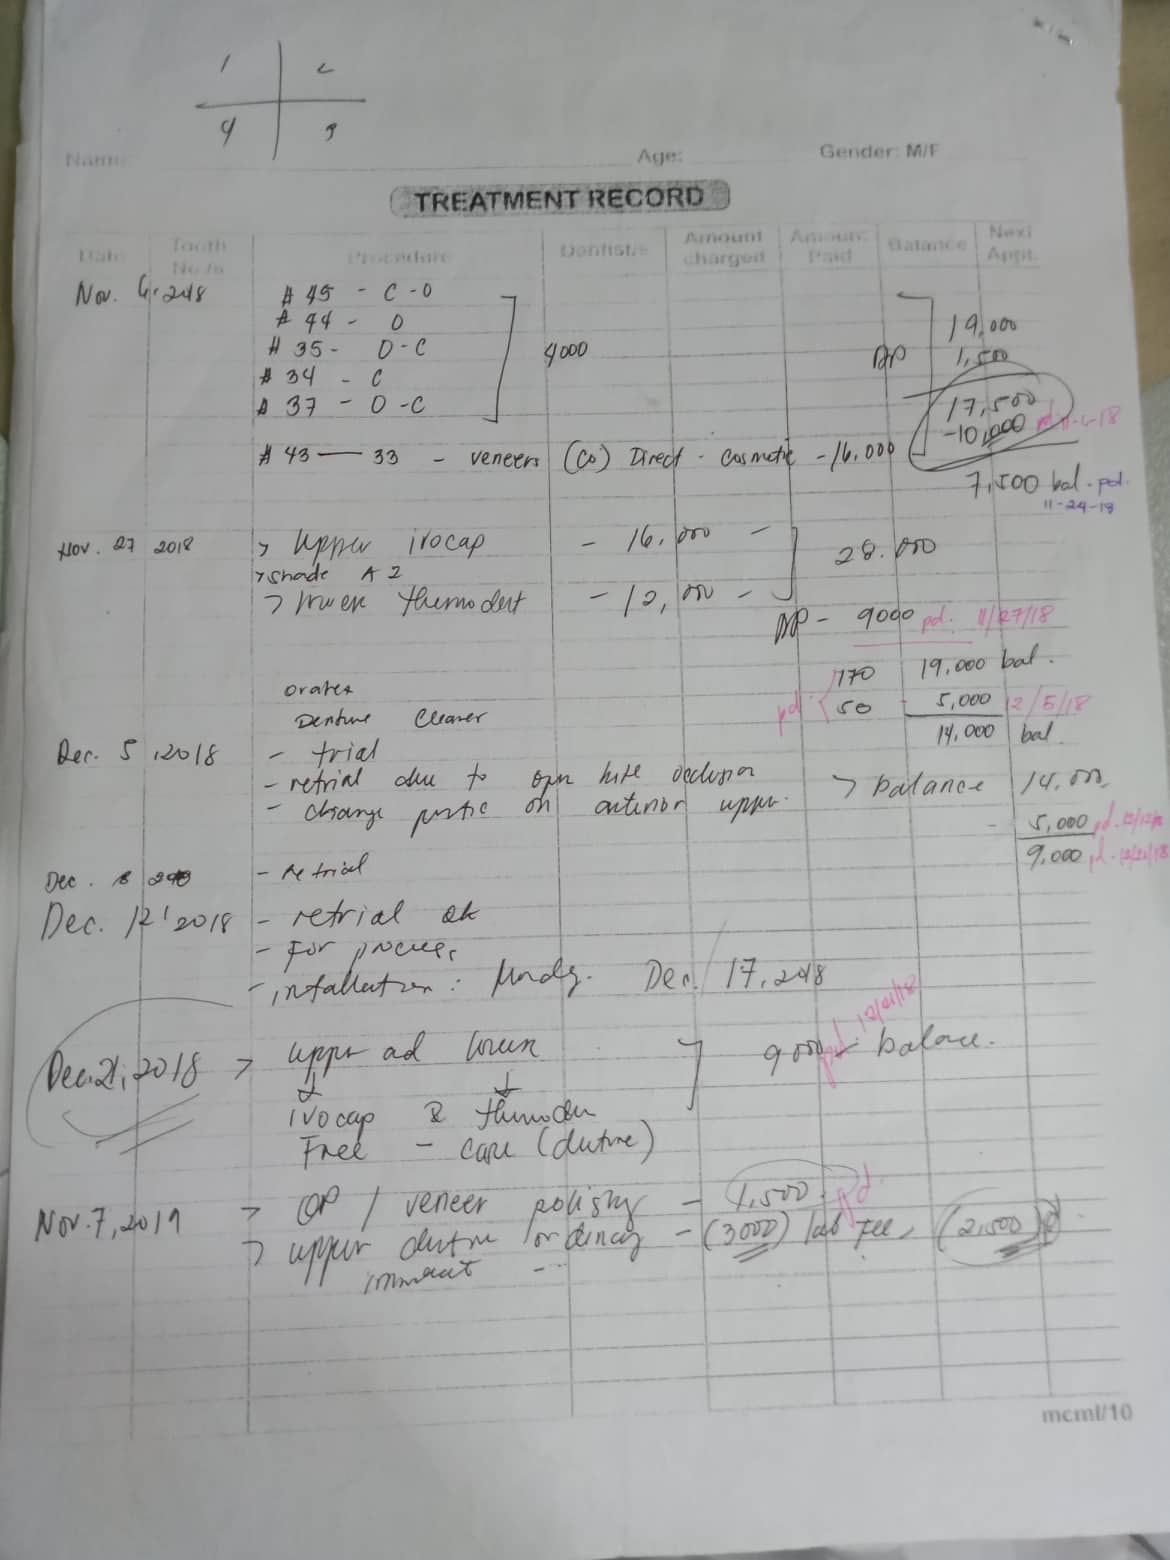 1 2
4 3
Name: Age: Gender: M/F
TREATMENT RECORD
Date Tooth No./s Procedure Dentist/s Amount charged Amount Paid Balance Next Appt.
Nov. 6, 2018 # 45 - C - O
# 44 - O 19,000
# 35 - O - C 4000 DP 1,500
# 34 - C
# 37 - O - C 17,500
-10,000 pd 11-6-18
# 43 — 33 - veneers (Co) Direct - Cosmetic - 16,000
7,500 bal - pd.
11-24-18
Nov. 27 2018 > Upper ivocap - 16,000 -
28.000
> shade A2
> lower thermodent - 12,000 -
DP - 9000 pd. 11/27/18
170 19,000 bal.
Denture Cleaner pd 50 5,000 12/5/18
14,000 bal
Dec. 5, 2018 - trial
- retrial due to open bite occlusion > balance 14,000
- change pontic on anterior upper.
- 5,000 pd.
9,000 pd.
Dec. 8 - Retrial
Dec. 12, 2018 - retrial ok
- For process
- installation: Dec. 17, 2018
Dec. 21, 2018 > upper ad lower 9000 balance. pd 12/21/18
ivocap & thermoden
Free - case (dutne)
Nov. 7, 2019 > OP / veneer polishing - 1,500 pd.
> upper - (3000) lab fee, (2,500)
mcml/10